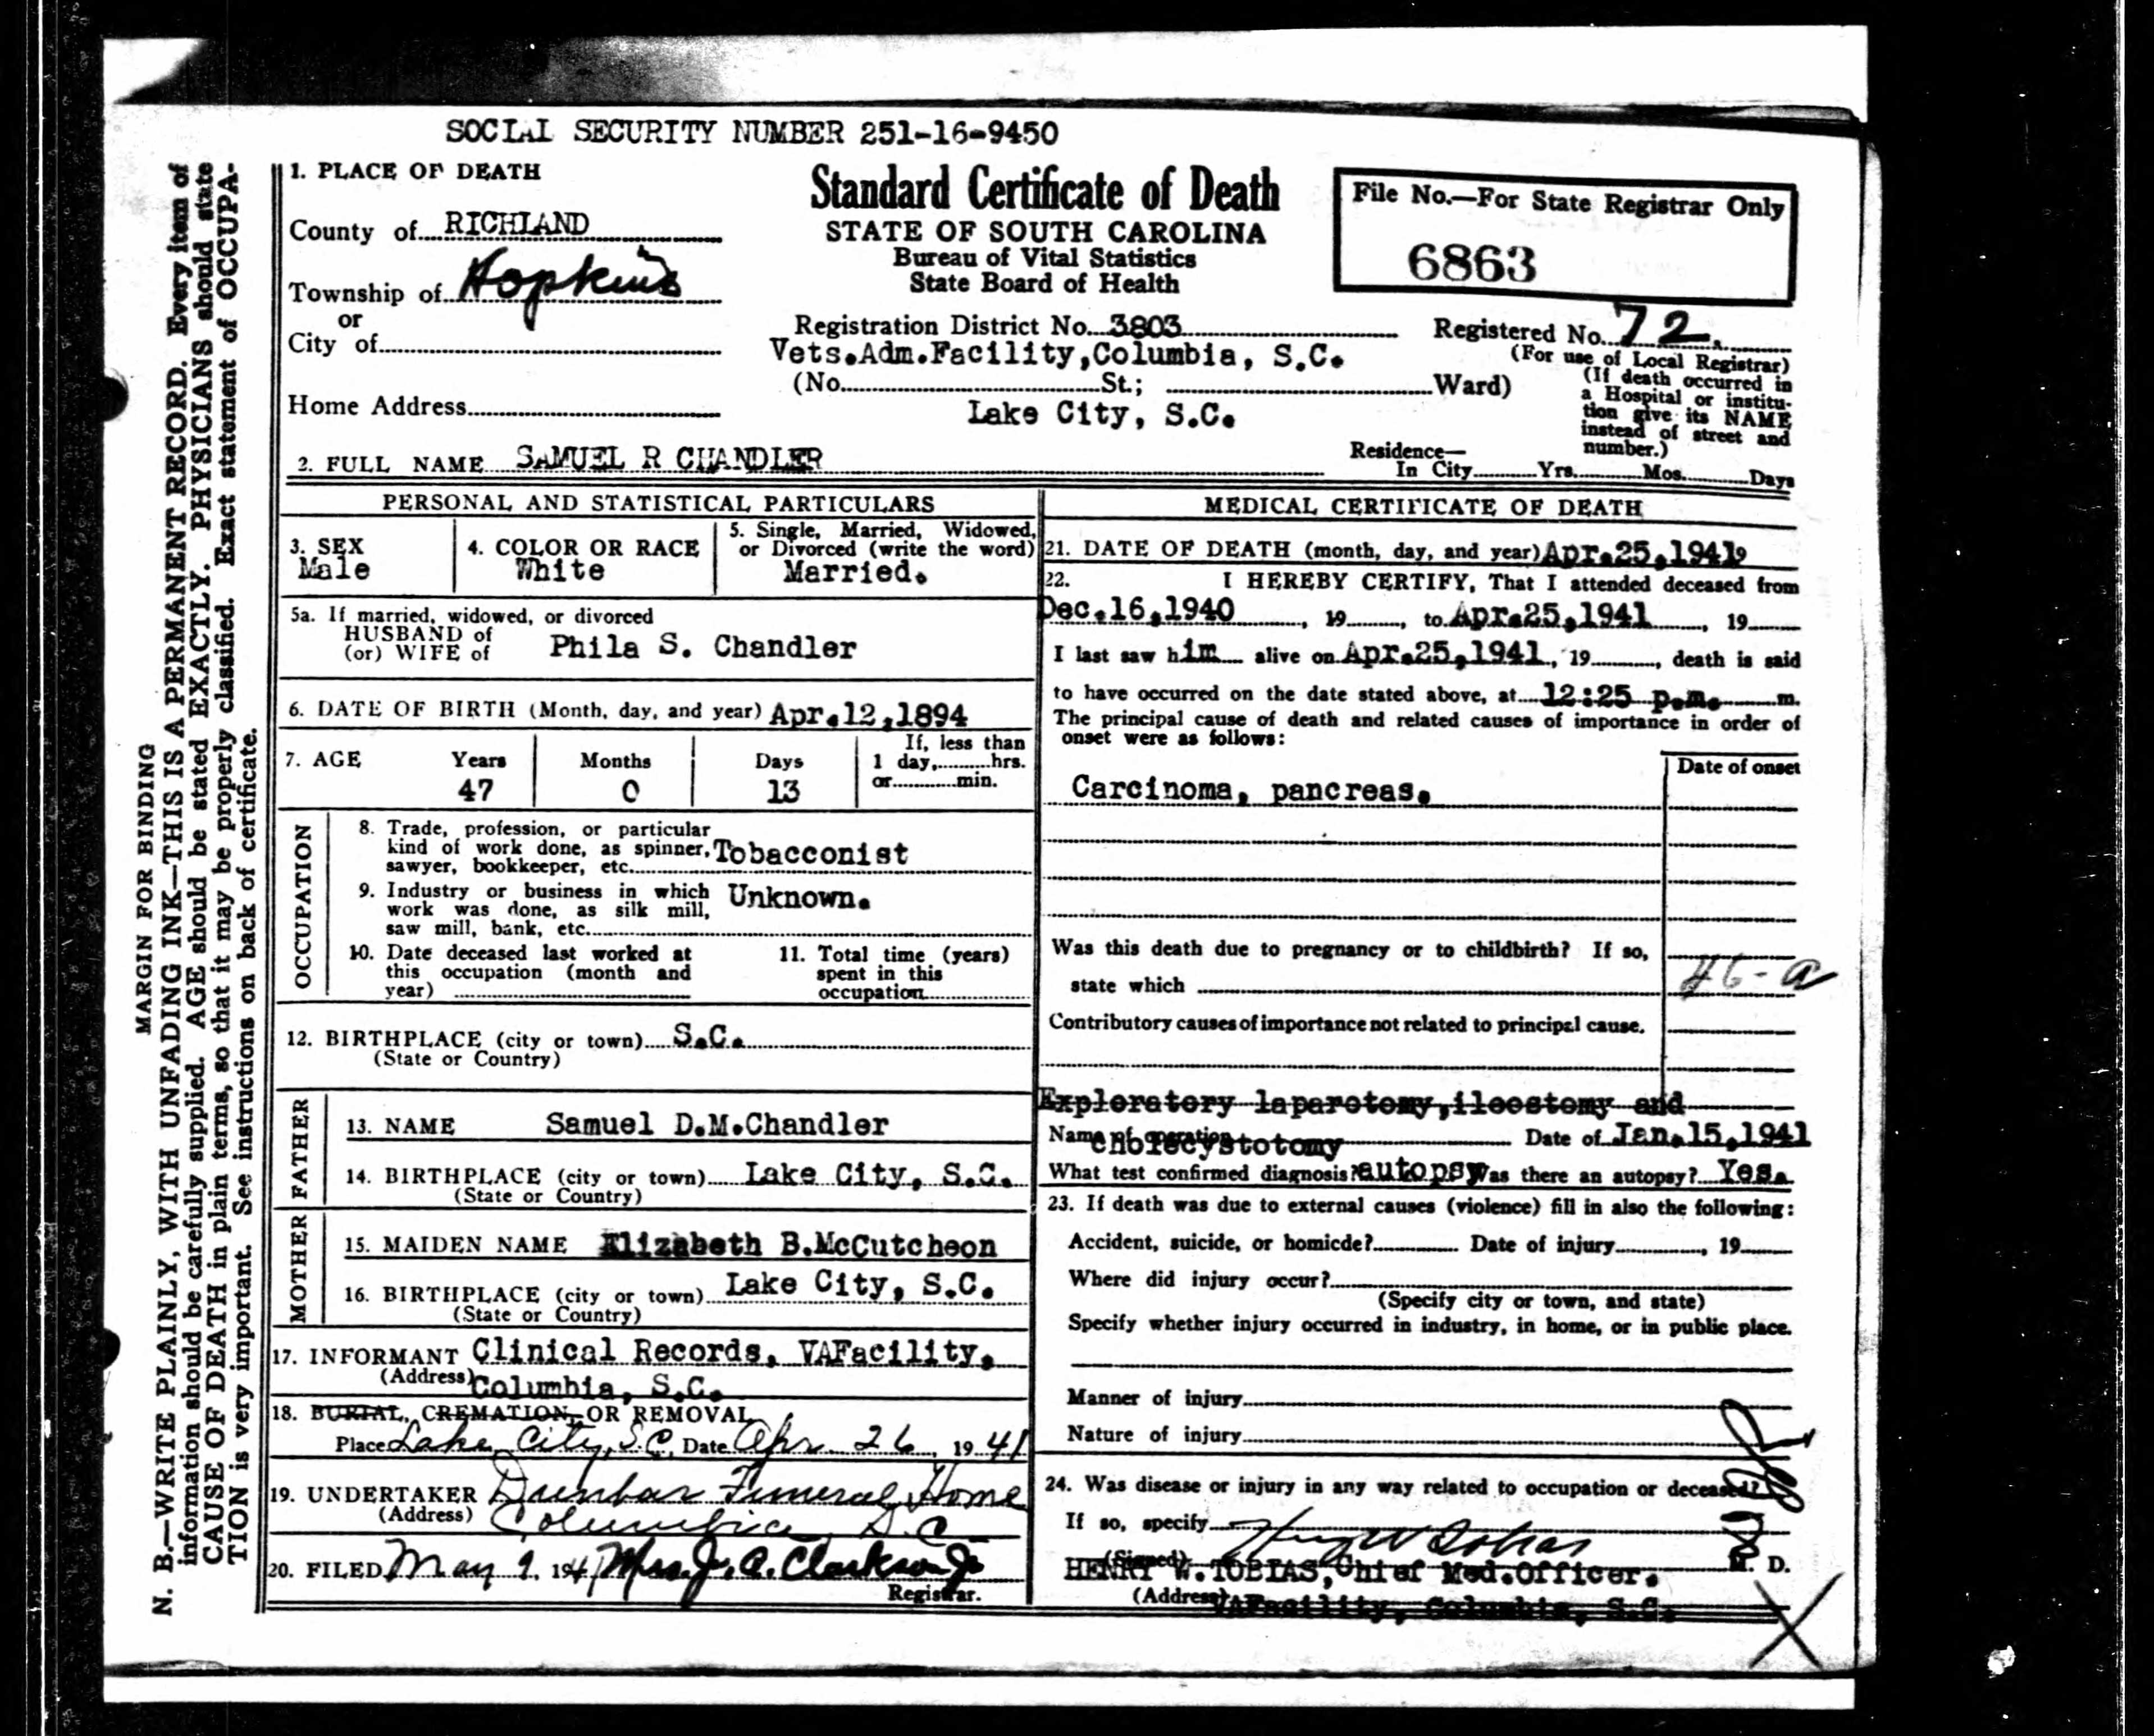 SOCIAL SECURITY NUMBER 251-16-9450
1. PLACE OF DEATH
County of RICHLAND
Township of Hopkins
or
City of
Home Address
Standard Certificate of Death
STATE OF SOUTH CAROLINA
Bureau of Vital Statistics
State Board of Health
File No.—For State Registrar Only
6863
Registration District No. 3803
Registered No. 72
(For use of Local Registrar)
Vets.Adm.Facility,Columbia, S.C.
(No. St.; Ward)
(If death occurred in
a Hospital or institu-
tion give its NAME
instead of street and
number.)
Lake City, S.C.
2. FULL NAME SAMUEL R CHANDLER
Residence—
In City Yrs. Mos. Days
PERSONAL AND STATISTICAL PARTICULARS
3. SEX
Male
4. COLOR OR RACE
White
5. Single, Married, Widowed,
or Divorced (write the word)
Married.
5a. If married, widowed, or divorced
HUSBAND of
(or) WIFE of Phila S. Chandler
6. DATE OF BIRTH (Month, day, and year) Apr.12,1894
7. AGE
Years
47
Months
0
Days
13
If, less than
1 day, hrs.
or min.
OCCUPATION
8. Trade, profession, or particular
kind of work done, as spinner, Tobacconist
sawyer, bookkeeper, etc.
9. Industry or business in which Unknown.
work was done, as silk mill,
saw mill, bank, etc.
10. Date deceased last worked at
this occupation (month and
year)
11. Total time (years)
spent in this
occupation
12. BIRTHPLACE (city or town) S.C.
(State or Country)
FATHER
13. NAME Samuel D.M.Chandler
14. BIRTHPLACE (city or town) Lake City, S.C.
(State or Country)
MOTHER
15. MAIDEN NAME Elizabeth B.McCutcheon
16. BIRTHPLACE (city or town) Lake City, S.C.
(State or Country)
17. INFORMANT Clinical Records, VAFacility,
(Address) Columbia, S.C.
18. BURIAL, CREMATION, OR REMOVAL
Place Lake City, S.C. Date Apr. 26, 1941
19. UNDERTAKER Dunbar Funeral Home
(Address) Columbia, S.C
20. FILED May 1. 1941 Mrs. J. A. Clarkson Jr
Registrar.
MEDICAL CERTIFICATE OF DEATH
21. DATE OF DEATH (month, day, and year) Apr.25,1941
22. I HEREBY CERTIFY, That I attended deceased from
Dec.16,1940, 19, to Apr.25,1941, 19
I last saw him alive on Apr.25,1941, 19, death is said
to have occurred on the date stated above, at 12:25 p.m. m.
The principal cause of death and related causes of importance in order of
onset were as follows:
Date of onset
Carcinoma, pancreas.
Was this death due to pregnancy or to childbirth? If so,
state which
46-a
Contributory causes of importance not related to principal cause.
Exploratory laparotomy,ileostomy and
Name of operation cholecystotomy Date of Jan.15,1941
What test confirmed diagnosis? autopsy Was there an autopsy? Yes.
23. If death was due to external causes (violence) fill in also the following:
Accident, suicide, or homicde? Date of injury, 19
Where did injury occur?
(Specify city or town, and state)
Specify whether injury occurred in industry, in home, or in public place.
Manner of injury
Nature of injury
24. Was disease or injury in any way related to occupation or deceased?
If so, specify
(Signed) Henry W Tobias
HENRY W.TOBIAS,Chief Med.Officer. M. D.
(Address) VAFacility, Columbia, S.C.
MARGIN FOR BINDING
N. B.—WRITE PLAINLY, WITH UNFADING INK—THIS IS A PERMANENT RECORD. Every item of
information should be carefully supplied. AGE should be stated EXACTLY. PHYSICIANS should state
CAUSE OF DEATH in plain terms, so that it may be properly classified. Exact statement of OCCUPA-
TION is very important. See instructions on back of certificate.